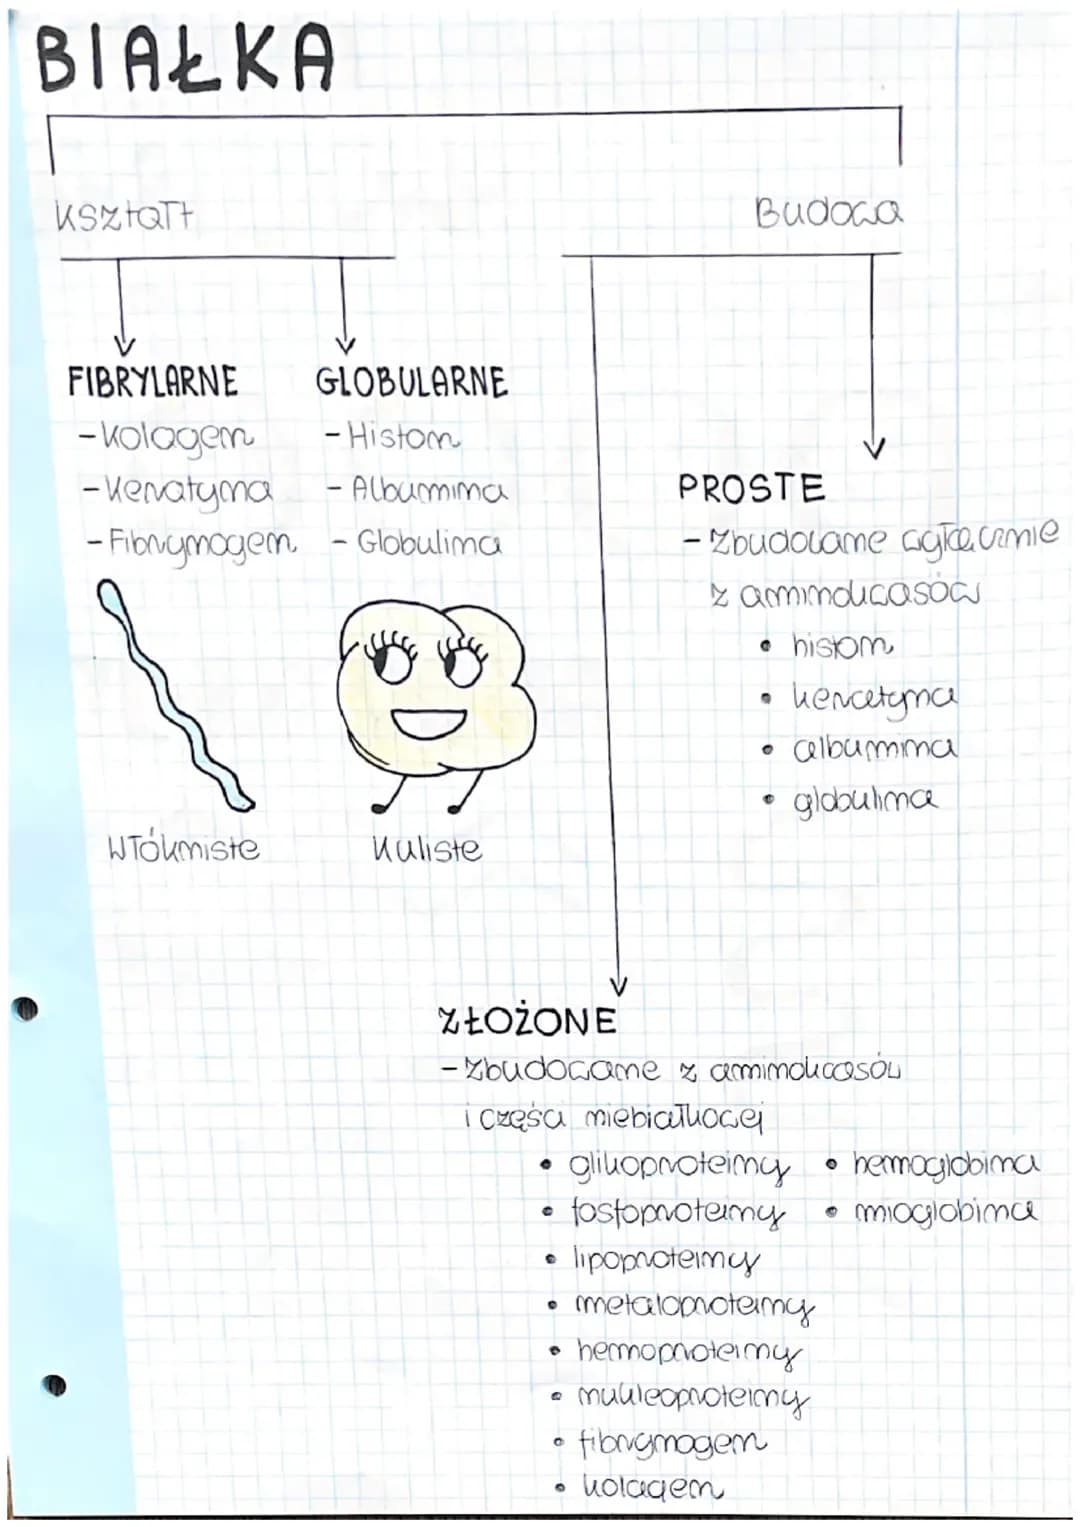 BIAŁKA
Kształt
Budowa
FIBRYLARNE
- Kolagen
- Keratyna
- Fibrynogen
Włókniste
GLOBULARNE
- Histon
- Albumina
- Globulina
Kuliste
PROSTE
- Zbudowane wyłącznie
z aminokwasów
• histon
• keratyna
• albumina
• globulina
ZŁOŻONE
- Zbudowane z aminokwasów
i części niebiałkowej
• glikoproteiny
• fosfoproteiny
• lipoproteiny
• metaloproteiny
• hemoproteiny
• nukleoproteiny
• fibrynogen
• kolagen
• hemoglobina
• mioglobina